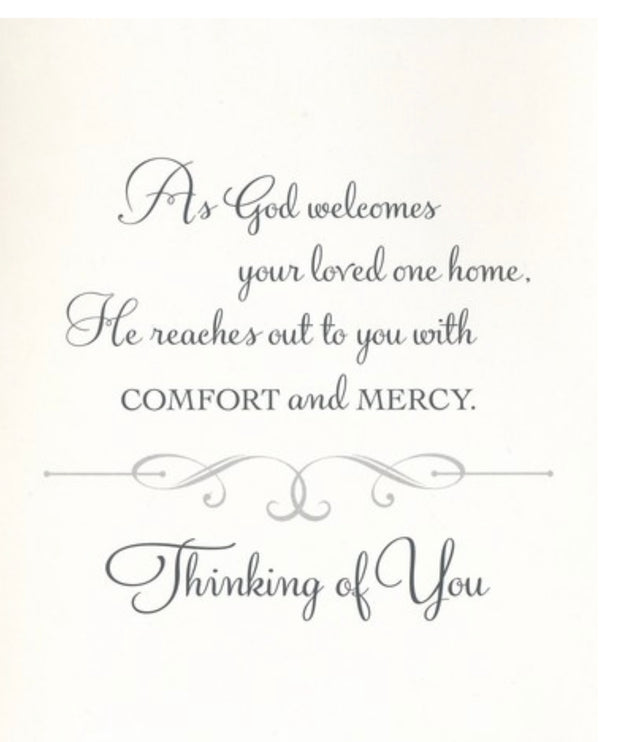 As God welcomes
your loved one home,
He reaches out to you with
COMFORT and MERCY.
Thinking of You